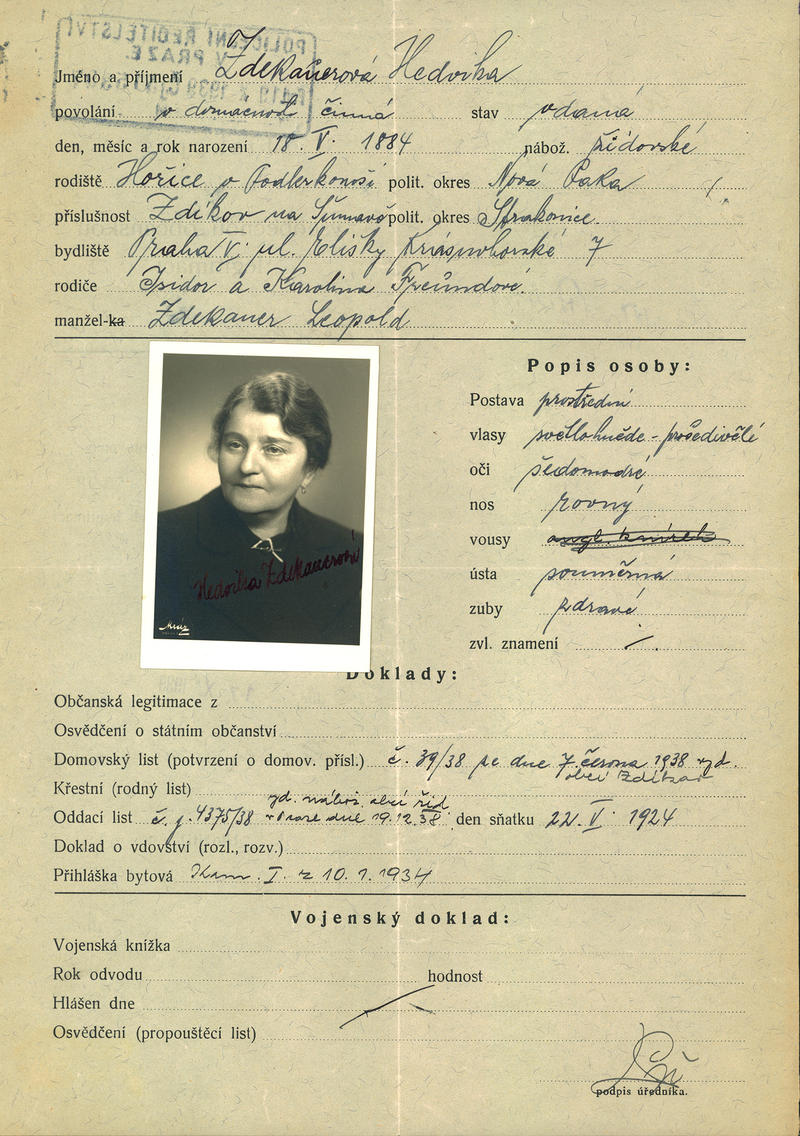 POLICEJNÍ ŘEDITELSTVÍ
V PRAZE
Jméno a příjmení Zdekauerová Hedvika
povolání v domácnosti činná stav vdaná
den, měsíc a rok narození 18. V. 1884 nábož. židovské
rodiště Hořice v Podkrkonoší polit. okres Nová Paka
příslušnost Zdíkov na Šumavě polit. okres Strakonice.
bydliště Praha V. ul. Elišky Krásnohorské 7
rodiče Isidor a Karolina Freundovi.
manžel-ka Zdekauer Leopold
Popis osoby:
Postava prostřední
vlasy světlohnědé - prošedivělé
oči šedomodré
nos rovný
vousy angl. knírek
ústa souměrná
zuby zdravé
zvl. znamení
Hedvika Zdekauerová
Doklady:
Občanská legitimace z
Osvědčení o státním občanství
Domovský list (potvrzení o domov. přísl.) č. 39/38 ze dne 7. června 1938 vyd.
obcí Zdíkov
Křestní (rodný list)
vyd. nábož. obcí žid
Oddací list č. j. 4375/38 v Praze dne 19.12.38 den sňatku 22. V. 1924
Doklad o vdovství (rozl., rozv.)
Přihláška bytová Kom. I. z 10. 1. 1934
Vojenský doklad:
Vojenská knížka
Rok odvodu hodnost
Hlášen dne
Osvědčení (propouštěcí list)
podpis úředníka.